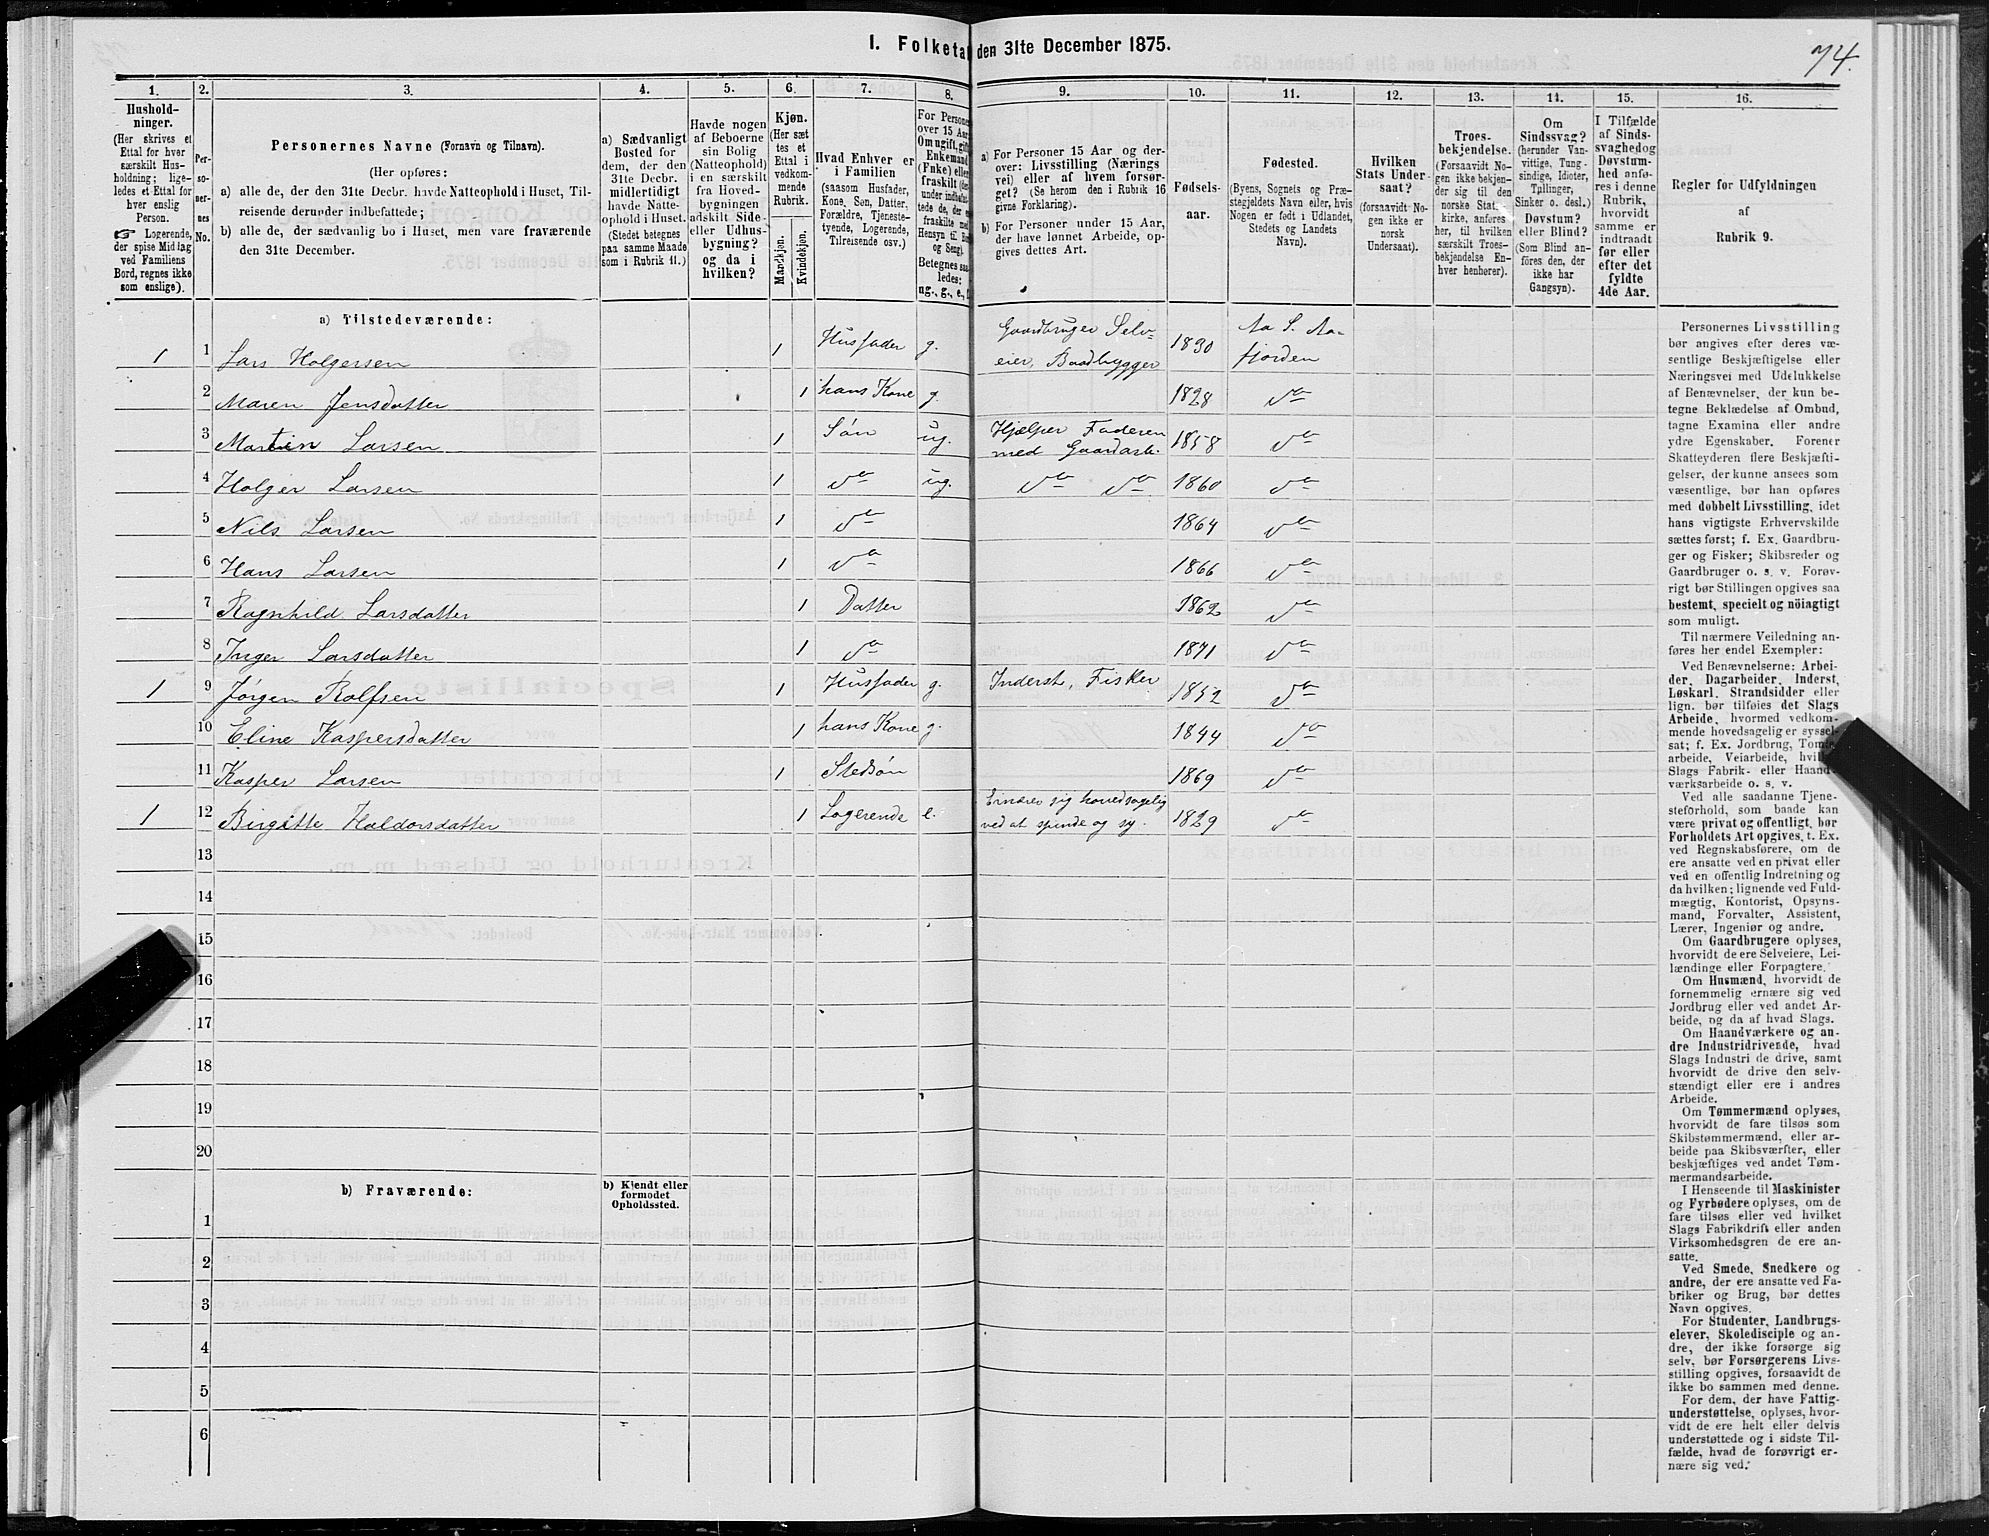 I. Folketal den 31te December 1875.
74.
1.
2.
3.
4.
5.
6.
7.
8.
9.
10.
11.
12.
13.
14.
15.
16.
Hushold-
ninger.
(Her skrives et
Ettal for hver
særskilt Hus-
holdning; lige-
ledes et Ettal for
hver enslig
Person.
☞ Logerende,
der spise Middag
ved Familiens
Bord, regnes ikke
som enslige).
Per-
so-
ner-
nes
No.
Personernes Navne (Fornavn og Tilnavn).
(Her opføres:
a) alle de, der den 31te Decbr. havde Natteophold i Huset, Til-
reisende derunder indbefattede;
b) alle de, der sædvanlig bo i Huset, men vare fraværende
den 31te December.
a) Sædvanligt
Bosted for
dem, der den
31te Decbr.
midlertidigt
havde Natte-
ophold i Huset.
(Stedet betegnes
paa samme Maade
som i Rubrik 11.)
Havde nogen
af Beboerne
sin Bolig
(Natteophold)
i en særskilt
fra Hoved-
bygningen
adskilt Side-
eller Udhus-
bygning?
og da i
hvilken?
Kjøn.
(Her sæt-
tes et
Ettal i
vedkom-
mende
Rubrik.
Mandkjøn.
Kvindekjøn.
Hvad Enhver er
i Familien
(saasom Husfader,
Kone, Søn, Datter,
Forældre, Tjeneste-
tyende, Logerende,
Tilreisende osv.)
For Personer
over 15 Aar:
Om ugift, gift,
Enkemand
(Enke) eller
fraskilt
Betegnes saa-
ledes:
ug., g., e., f.
a) For Personer 15 Aar og der-
over: Livsstilling (Nærings-
vei) eller af hvem forsør-
get? (Se herom den i Rubrik 16
givne Forklaring).
b) For Personer under 15 Aar,
der have lønnet Arbeide, op-
gives dettes Art.
Fødsels-
aar.
Fødested.
(Byens, Sognets og Præ-
stegjeldets Navn eller, hvis
Nogen er født i Udlandet,
Stedets og Landets
Navn).
Hvilken
Stats Under-
saat?
(forsaavidt No-
gen ikke er
norsk
Undersaat).
Troes-
bekjendelse.
(Forsaavidt No-
gen ikke bekjen-
der sig til den
norske Stats-
kirke, anføres
her, til hvilken
særskilt Troes-
bekjendelse En-
hver henhører).
Om
Sindssvag?
(herunder Van-
vittige, Tung-
sindige, Idioter,
Tpllinger,
Sinker o. desl.)
Døvstum?
eller Blind?
(Som Blind an-
føres den, der
ikke har
Gangsyn).
I Tilfælde
af Sinds-
svaghed og
Døvstum-
hed anfø-
res i denne
Rubrik,
hvorvidt
samme er
indtraadt
før eller
efter det
fyldte
4de Aar.
Regler for Udfyldningen
af
Rubrik 9.
a) Tilstedeværende:
1 1 Lars Holgersen 1 Husfader g. Gaardbruger Selv-
eier, Baadbygger 1830 Aa S. Aa-
fjorden
2 Maren Jensdatter 1 hans Kone g. 1828 do
3 Martin Larsen 1 Søn ug. Hjælper Faderen
med Gaardarb. 1858 do
4 Holger Larsen 1 do ug. do do 1860 do
5 Nils Larsen 1 do 1864 do
6 Hans Larsen 1 do 1866 do
7 Ragnhild Larsdatter 1 Datter 1862 do
8 Inger Larsdatter 1 do 1871 do
1 9 Jørgen Rolfsen 1 Husfader g. Inderst, Fisker 1852 do
10 Eline Kaspersdatter 1 hans Kone g. 1844 do
11 Kasper Larsen 1 Stedsøn 1869 do
1 12 Birgitte Haldorsdatter 1 Logerende e. Ernærer sig hovedsagelig
ved at spinde og sy. 1829 do
13
14
15
16
17
18
19
20
b) Fraværende:
b) Kjendt eller
formodet
Opholdssted.
1
2
3
4
5
6
Personernes Livsstilling
bør angives efter deres væ-
sentlige Beskjæftigelse eller
Næringsvei med Udelukkelse
af Benævnelser, der kun be-
tegne Beklædelse af Ombud,
tagne Examina eller andre
ydre Egenskaber. Forener
Skatteyderen flere Beskjæfti-
gelser, der kunne ansees som
væsentlige, bør han opføres
med dobbelt Livsstilling, idet
hans vigtigste Erhvervskilde
sættes først; f. Ex. Gaardbru-
ger og Fisker; Skibsreder og
Gaardbruger o. s. v. Forøv-
rigt bør Stillingen opgives saa
bestemt, specielt og nöiagtigt
som muligt.
Til nærmere Veiledning an-
føres her endel Exempler:
Ved Benævnelserne: Arbei-
der, Dagarbeider, Inderst,
Løskarl, Strandsidder eller
lign. bør tilføies det Slags
Arbeide, hvormed vedkom-
mende hovedsagelig er syssel-
sat; f. Ex. Jordbrug, Tomte-
arbeide, Veiarbeide, hvilket
Slags Fabrik- eller Haand-
værksarbeide o. s. v.
Ved alle saadanne Tjene-
steforhold, som baade kan
være privat og offentligt, bør
Forholdets Art opgives, t. Ex.
ved Regnskabsførere, om de
ere ansatte ved en privat eller
ved en offentlig Indretning og
da hvilken; lignende ved Fuld-
mægtig, Kontorist, Opsyns-
mand, Forvalter, Assistent,
Lærer, Ingeniør og andre.
Om Gaardbrugere oplyses,
hvorvidt de ere Selveiere, Lei-
lændinge eller Forpagtere.
Om Husmænd, hvorvidt de
fornemmelig ernære sig ved
Jordbrug eller ved andet Ar-
beide, og da af hvad Slags.
Om Haandværkere og an-
dre Industridrivende, hvad
Slags Industri de drive, samt
hvorvidt de drive den selv-
stændigt eller ere i andres
Arbeide.
Om Tømmermænd oplyses,
hvorvidt de fare tilsøs som
Skibstømmermænd, eller ar-
beide paa Skibsværfter, eller
beskjæftiges ved andet Tøm-
mermandsarbeide.
I Henseende til Maskinister
og Fyrbødere oplyses, om de
fare tilsøs eller ved hvilket
Slags Fabrikdrift eller anden
Virksomhedsgren de ere an-
satte.
Ved Smede, Snedkere og
andre, der ere ansatte ved Fa-
briker og Brug, bør dettes
Navn opgives.
For Studenter, Landbrugs-
elever, Skoledisciple og an-
dre, der ikke forsørge sig
selv, bør Forsørgerens Livs-
stilling opgives, forsaavidt de
ikke bo sammen med denne.
For dem, der have Fattig-
understøttelse, oplyses, hvor-
vidt de ere helt eller delvis
understøttede og i sidste Til-
fælde, hvad de forøvrigt er-
nære sig ved.